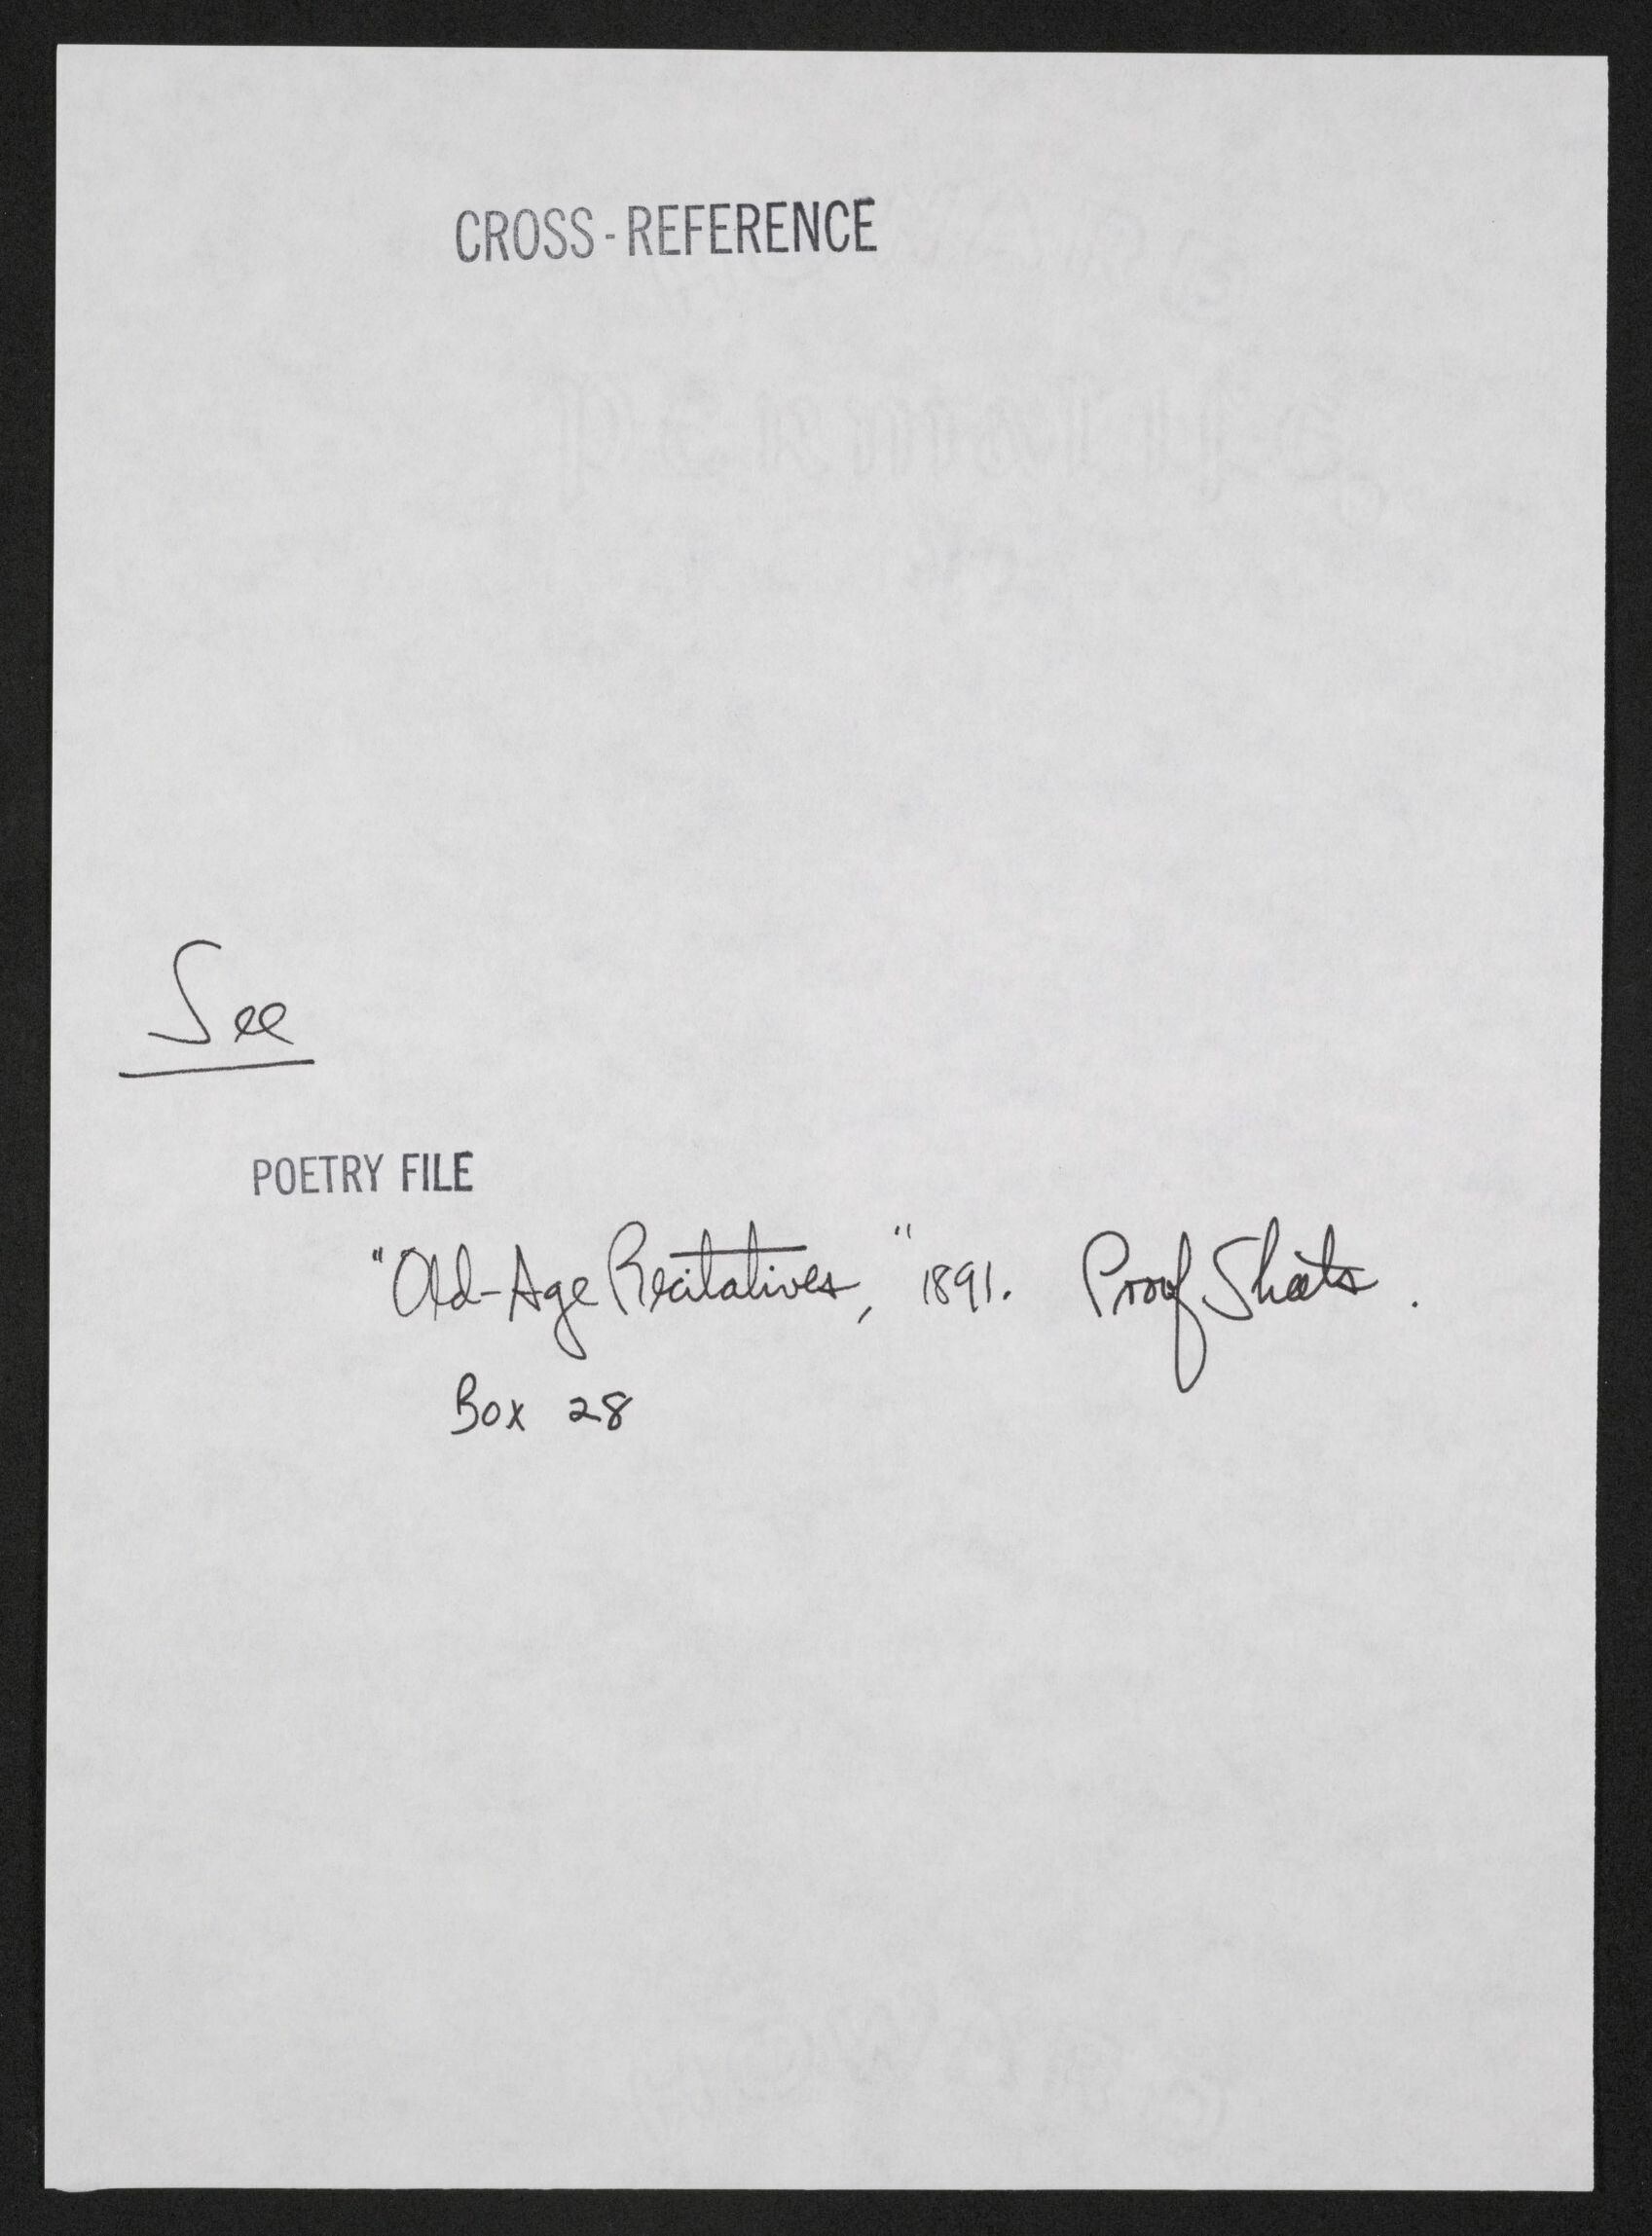 CROSS-REFERENCE
See
POETRY FILE
"Old-Age Recitatives," 1891. Proof Sheets.
Box 28